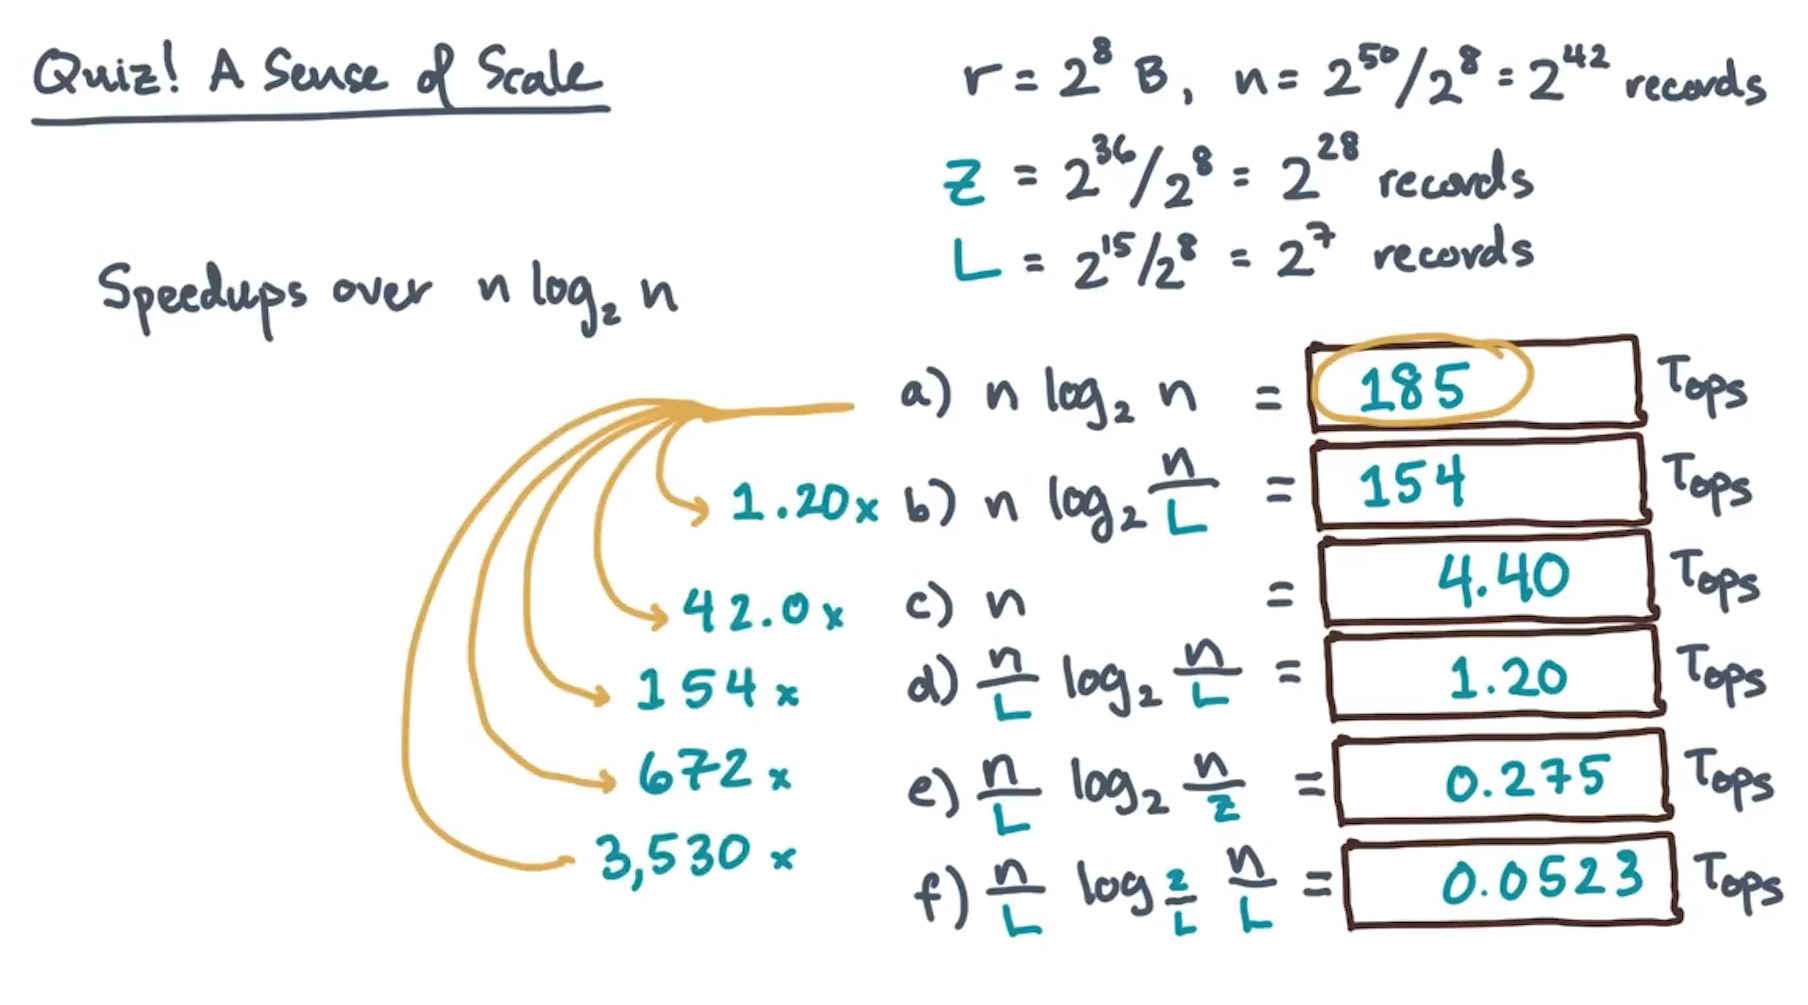 Quiz! A Sense of Scale
r = 2⁸ B, n = 2⁵⁰/2⁸ = 2⁴² records
Z = 2³⁶/2⁸ = 2²⁸ records
L = 2¹⁵/2⁸ = 2⁷ records
Speedups over n log₂ n
a) n log₂ n = 185 Tops
1.20x b) n log₂ n/L = 154 Tops
42.0x c) n = 4.40 Tops
154x d) n/L log₂ n/L = 1.20 Tops
672x e) n/L log₂ n/Z = 0.275 Tops
3,530x f) n/L log_{Z/L} n/L = 0.0523 Tops